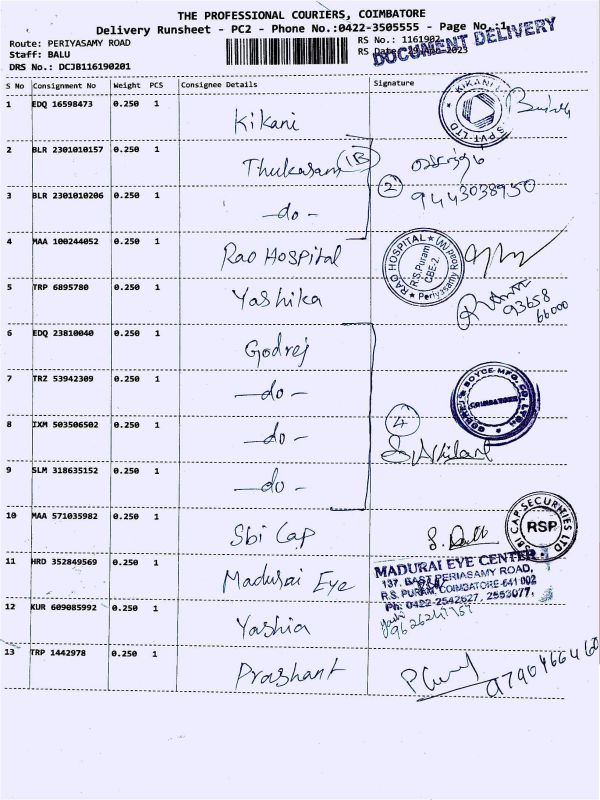 THE PROFESSIONAL COURIERS, COIMBATORE
Delivery Runsheet - PC2 - Phone No.:0422-3505555 - Page No.:1
Route: PERIYASAMY ROAD
RS No.: 1161902
Staff: BALU
RS Date: 29-Apr-2023
DOCUMENT DELIVERY
DRS No.: DCJB116190201
S No Consignment No Weight PCS Consignee Details Signature
1 EDQ 16598473 0.250 1 Kikani
KIKANI PVT LTD
2 BLR 2301010157 0.250 1 Thukasam 1B
2
3 BLR 2301010206 0.250 1 -do-
9443038950
4 MAA 100244052 0.250 1 Rao Hospital
RAO HOSPITAL Periyasamy Road (W)
R.S.Puram
CBE-2.
5 TRP 6895780 0.250 1 Yashika
93658
66000
6 EDQ 23810040 0.250 1 Godrej
7 TRZ 53942309 0.250 1 -do-
GODREJ & BOYCE MFG. CO. LTD.
COIMBATORE
8 IXM 503506502 0.250 1 -do-
4
9 SLM 318635152 0.250 1 -do-
10 MAA 571035982 0.250 1 Sbi Cap
SBI CAP SECURITIES LTD
RSP
11 HRD 352849569 0.250 1 Madurai Eye
MADURAI EYE CENTRE
137, EAST PERIASAMY ROAD,
R.S. PURAM, COIMBATORE-641 002
Ph: 0422-2542827, 2553077,
12 KUR 609085992 0.250 1 Yashia
13 TRP 1442978 0.250 1 Prashant
9790466460